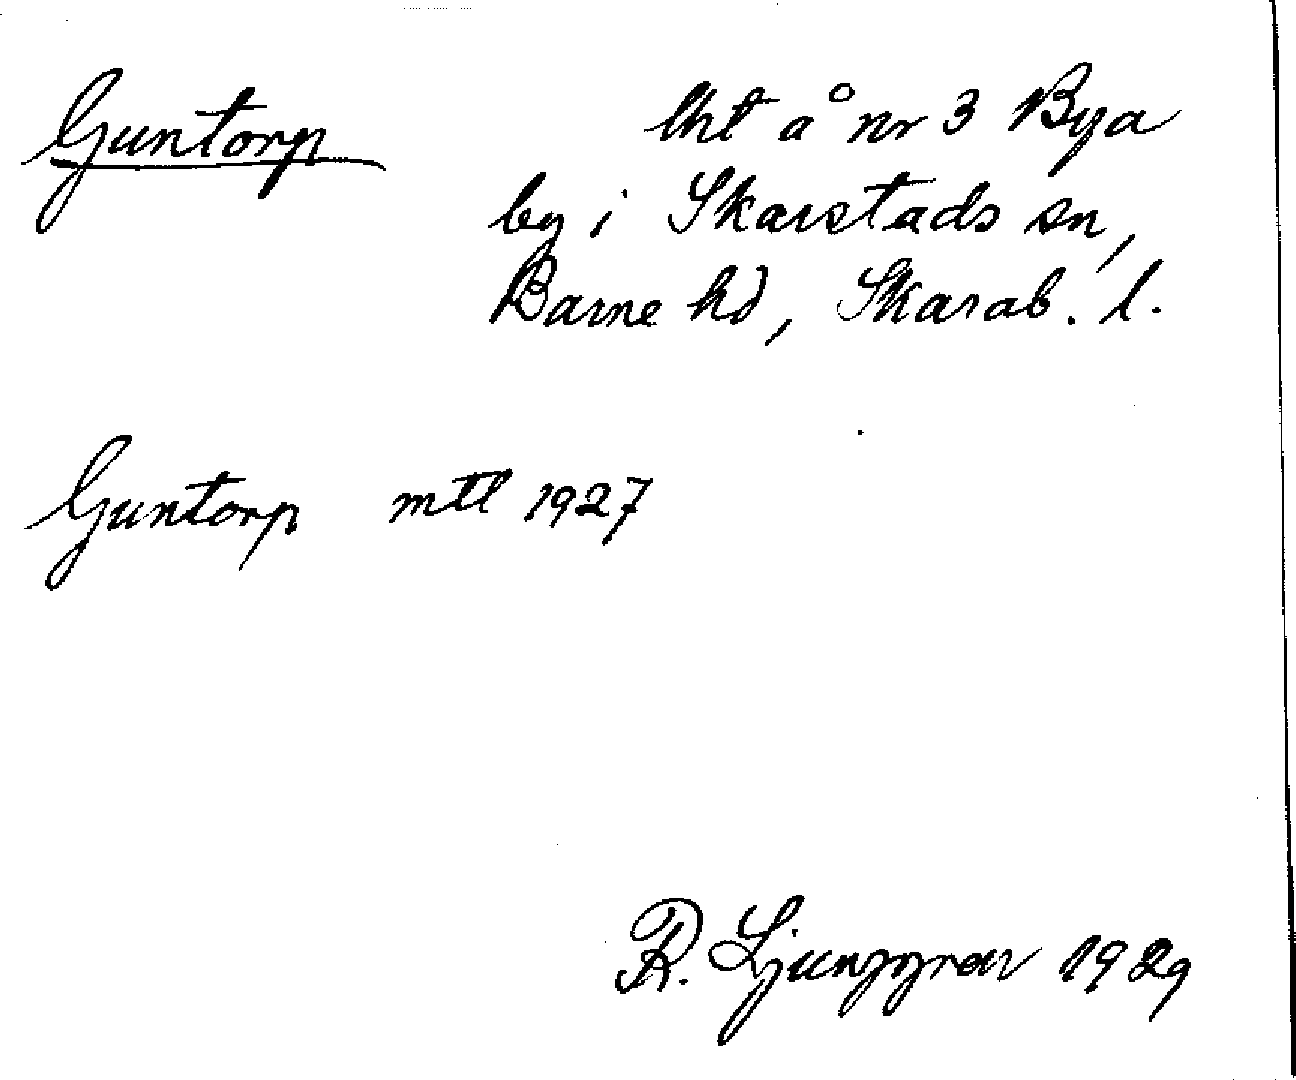 Guntorp
lht å nr 3 Bya
by i Skarstads sn,
Barne hd, Skarab. l.
Guntorp mtl 1927
R. Ljunggren 1929